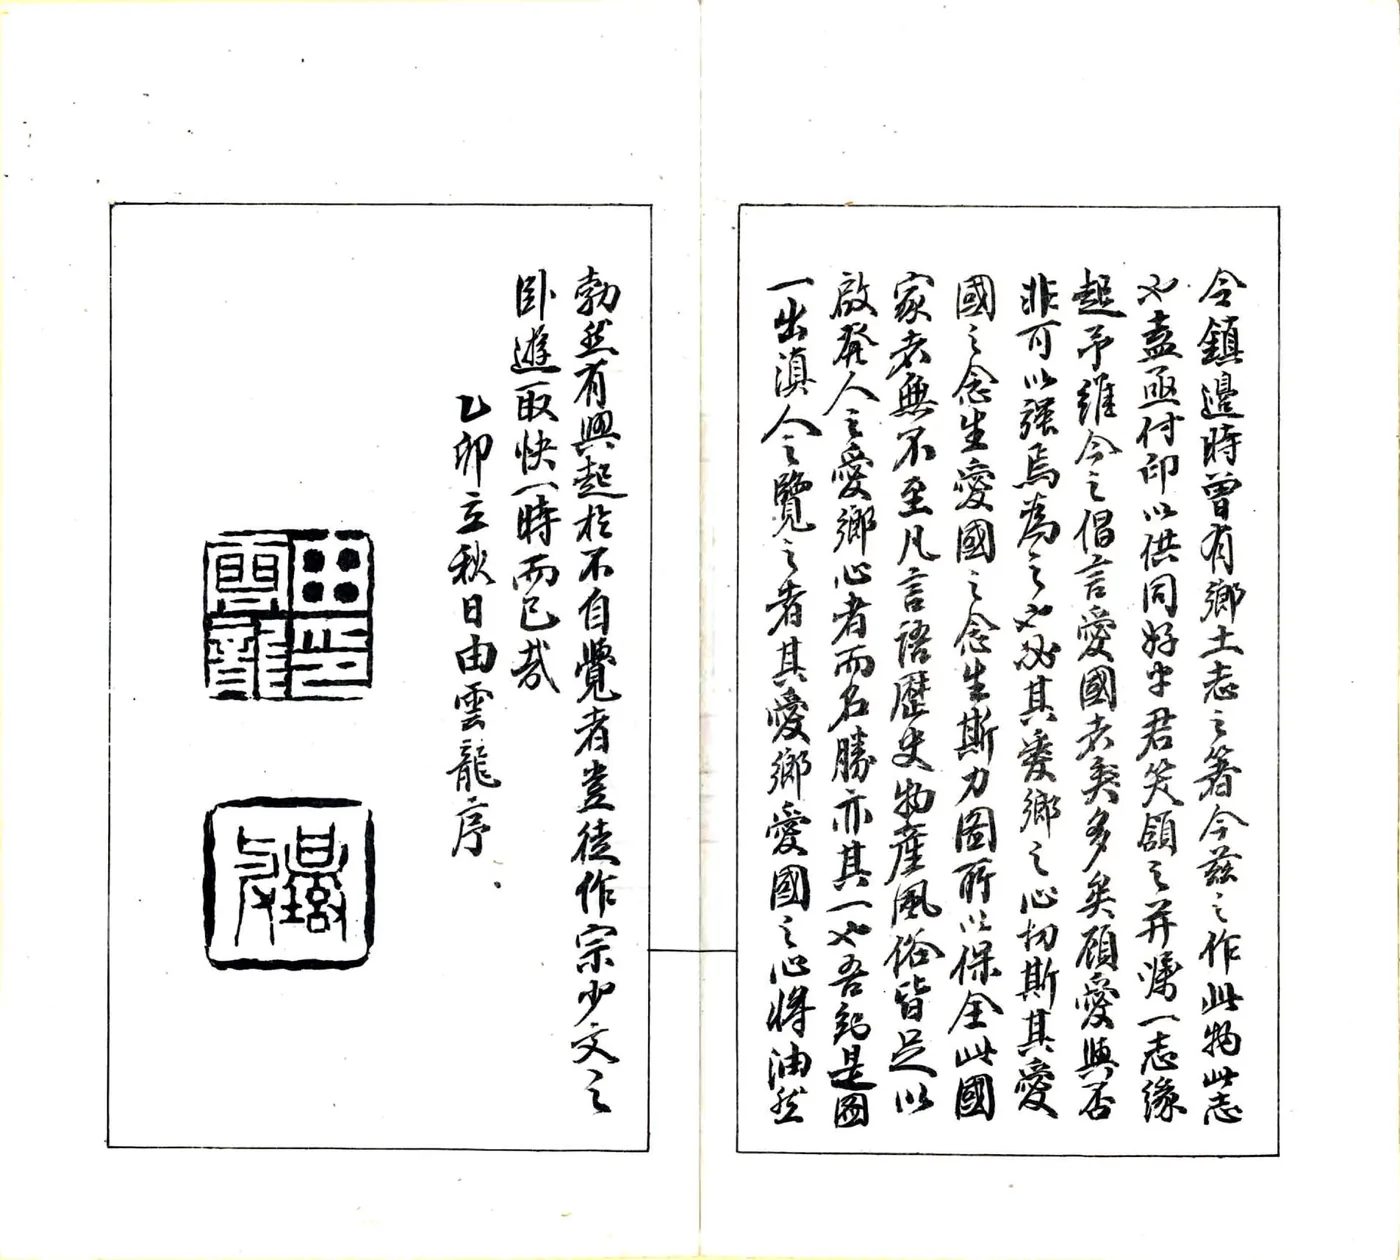 令鎮邊時曾有鄉土志之箸今茲之作此物此志
也盍亟付印以供同好乎君笑頷之并囑一志緣
起予維今之倡言愛國者奚多矣顧愛與否
非可以强焉為之也必其愛鄉之心切斯其愛
國之念生愛國之念生斯力圖所以保全此國
家者無不至凡言語歷史物產風俗皆足以
啟發人之愛鄉心者而名勝亦其一也吾知是圖
一出滇人之覽之者其愛鄉愛國之心將油然
勃然有興起於不自覺者豈徒作宗少文之
臥遊取快一時而已哉
乙卯立秋日由雲龍序
由雲龍印